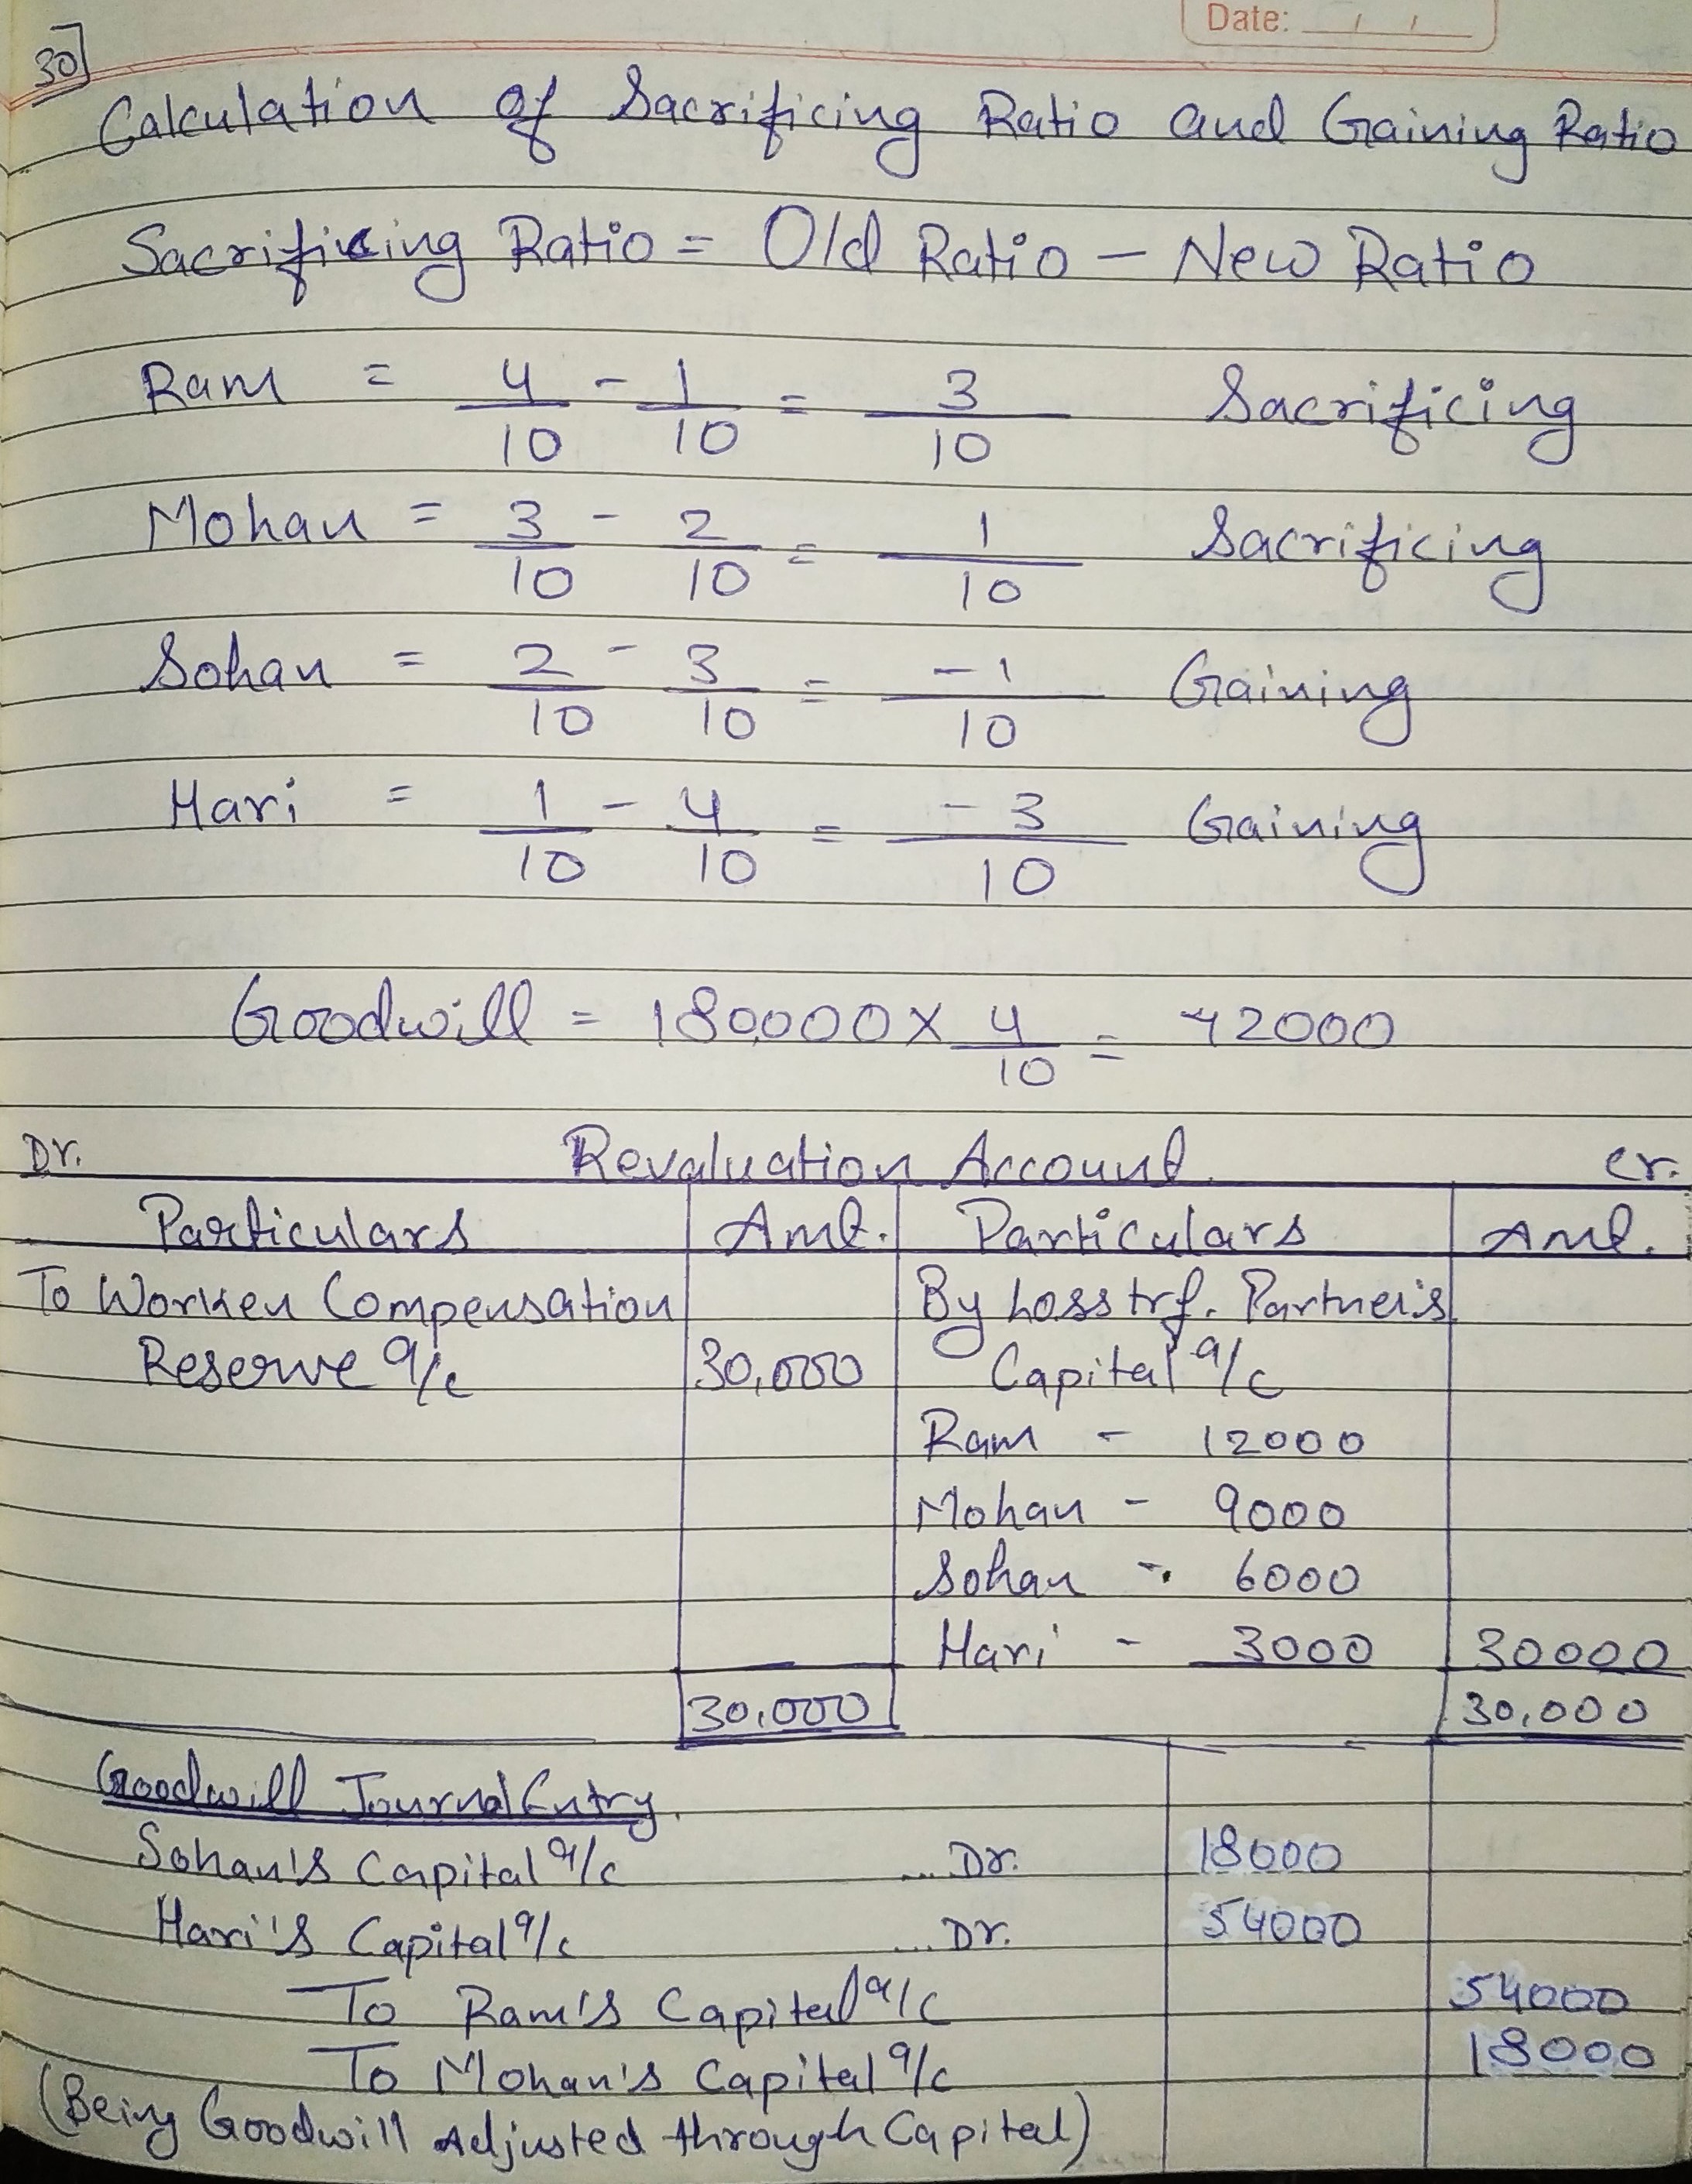 Date: / /
30]
Calculation of Sacrificing Ratio and Gaining Ratio
Sacrificing Ratio = Old Ratio - New Ratio
Ram = 4/10 - 1/10 = 3/10 Sacrificing
Mohan = 3/10 - 2/10 = 1/10 Sacrificing
Sohan = 2/10 - 3/10 = -1/10 Gaining
Hari = 1/10 - 4/10 = -3/10 Gaining
Goodwill = 180,000 X 4/10 = 72000
Dr. Revaluation Account. Cr.
Particulars Amt. Particulars Amt.
To Worken Compensation By Loss trf. Partner's
Reserve a/c 30,000 Capital a/c
Ram - 12000
Mohan - 9000
Sohan - 6000
Hari - 3000 30000
30,000 30,000
Goodwill Journal Entry.
Sohan's Capital a/c ... Dr. 18000
Hari's Capital a/c ... Dr. 54000
To Ram's Capital a/c 54000
To Mohan's Capital a/c 18000
(Being Goodwill Adjusted through Capital)